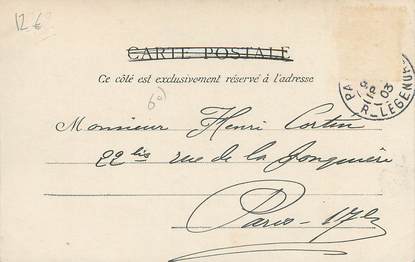 12 €
CARTE POSTALE
Ce côté est exclusivement réservé à l'adresse
60)
Monsieur Henri Cortin
22 bis rue de la Jonquière
Paris - 17e
PA
03
R. LEGENDRE